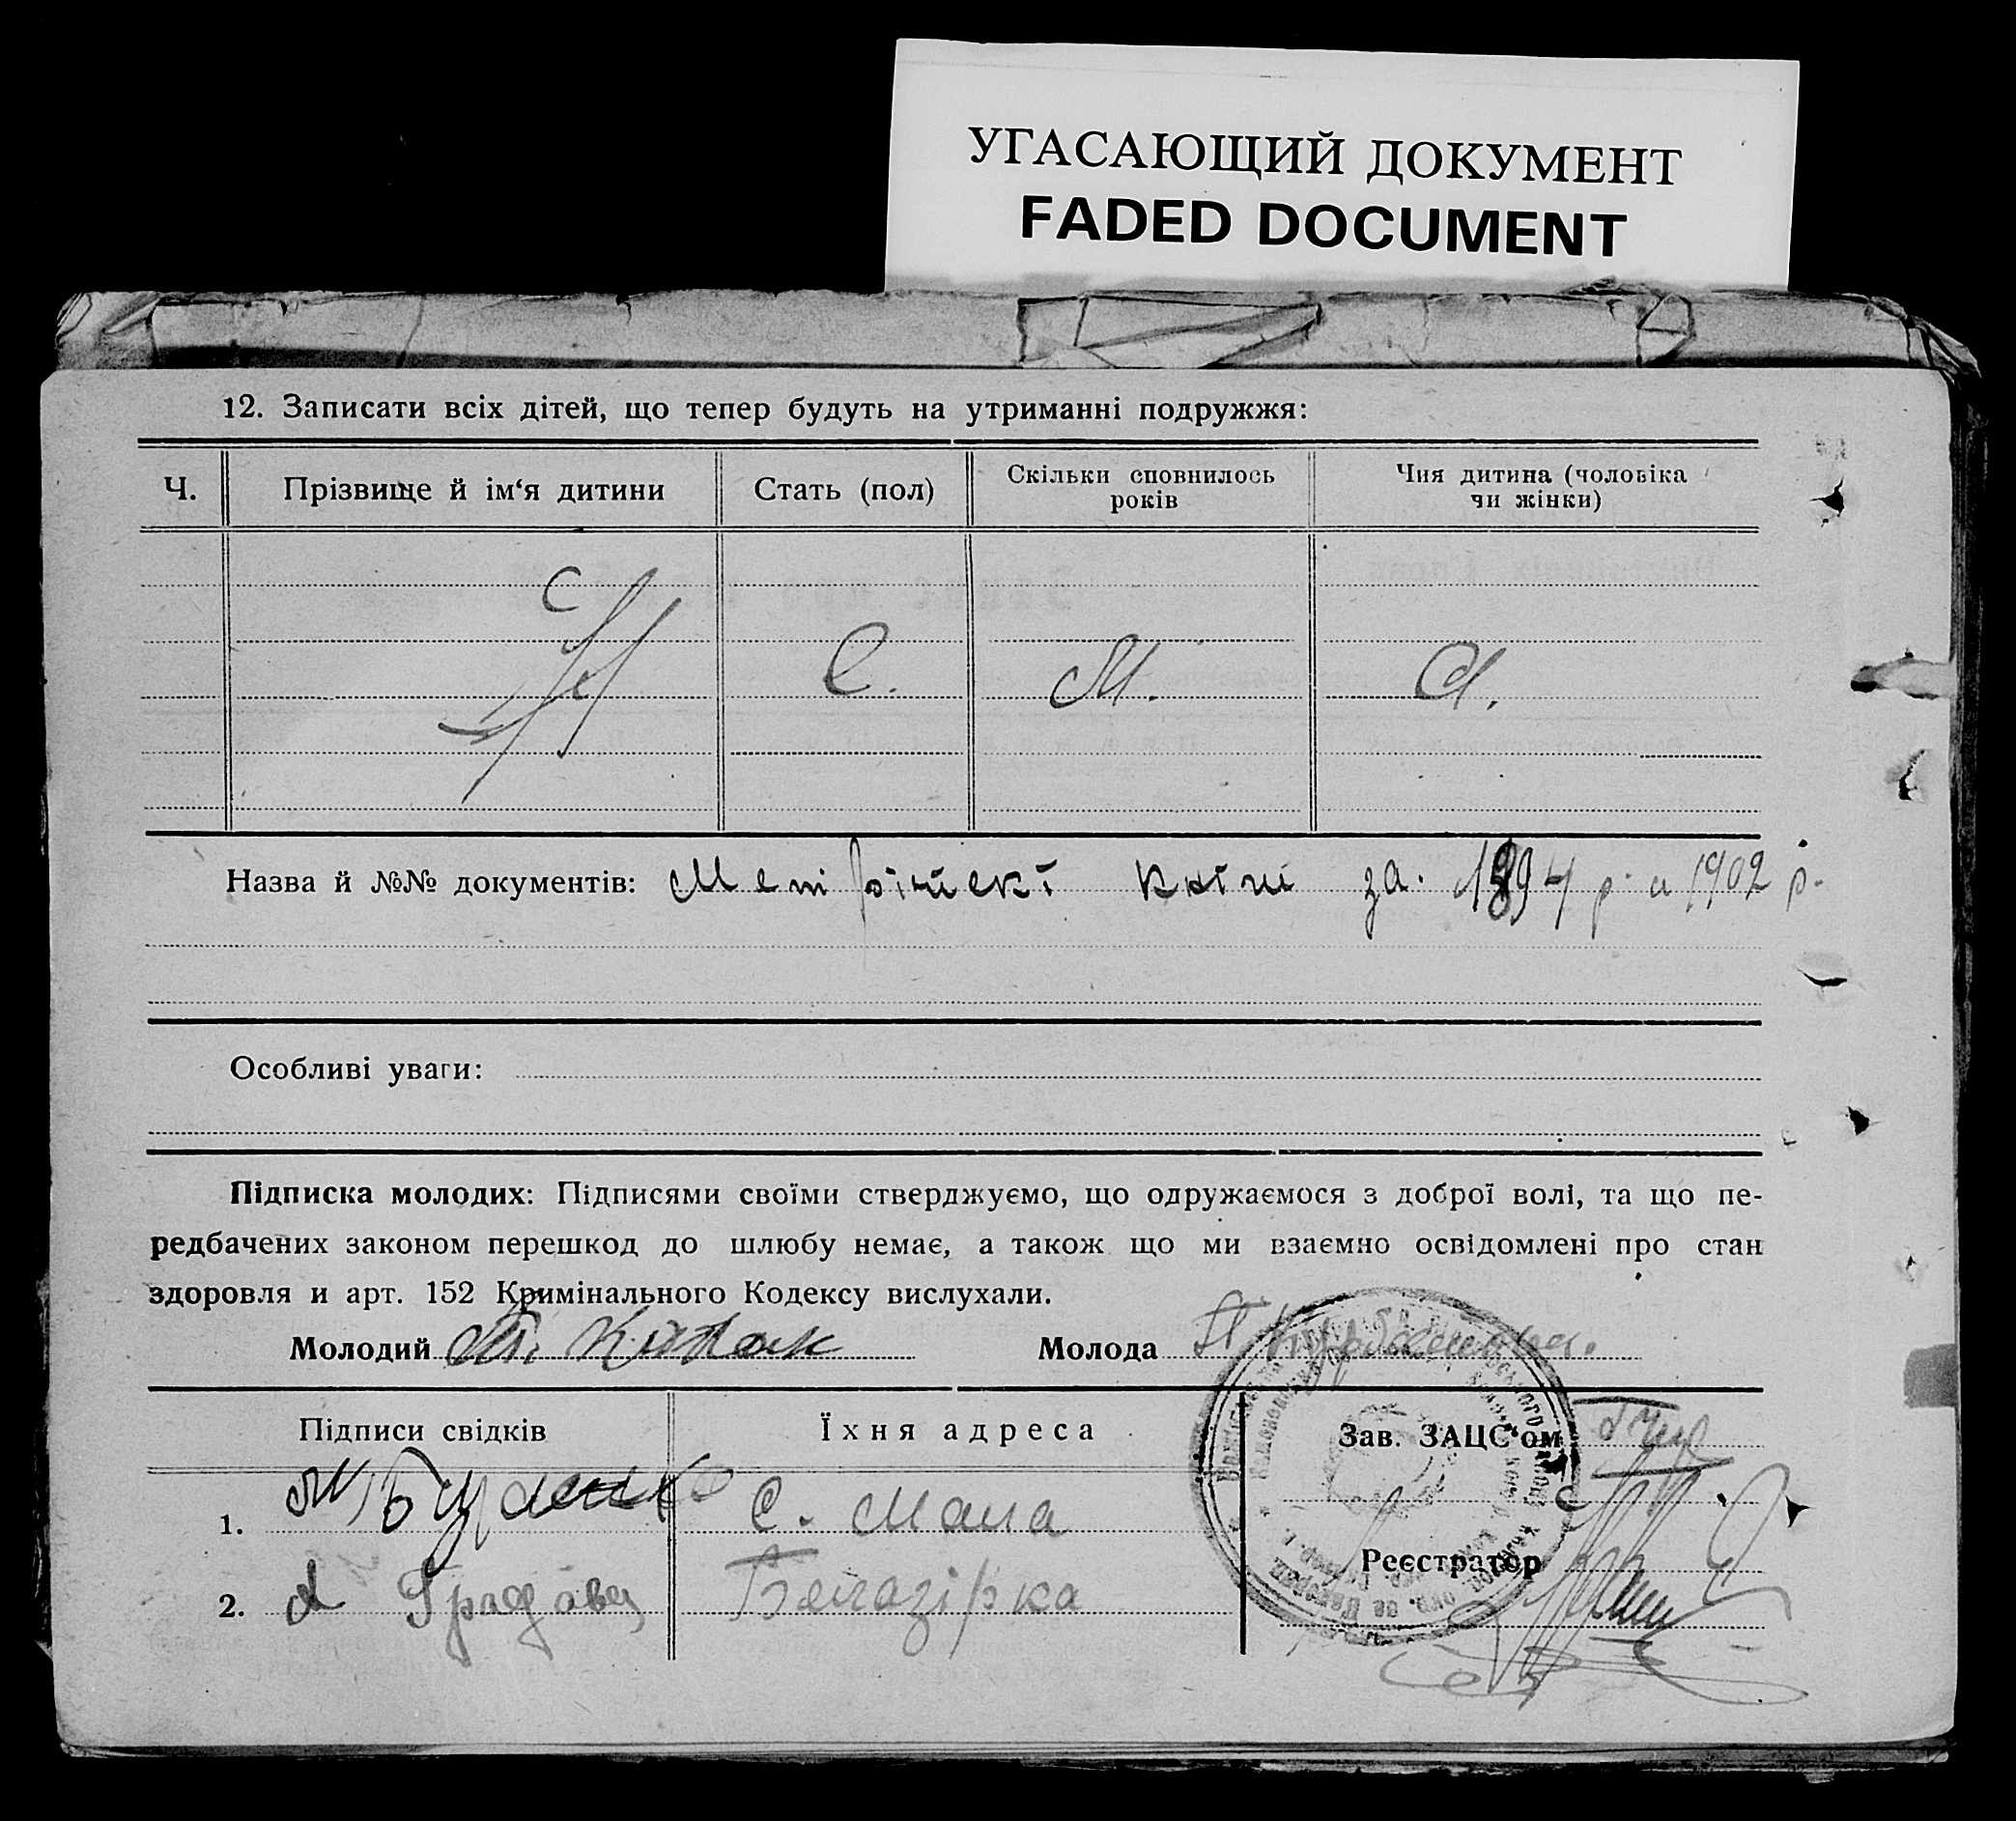 УГАСАЮЩИЙ ДОКУМЕНТ
FADED DOCUMENT
12. Записати всіх дітей, що тепер будуть на утриманні подружжя:
Ч. Прізвище й ім‘я дитини Стать (пол) Скільки сповнилось років Чия дитина (чоловіка чи жінки)
Н е М. А.
Назва й №№ документів: Метрійскі кніги за. 1894 р. и 1902 р.
Особливі уваги:
Підписка молодих: Підписями своїми стверджуємо, що одружаємося з доброї волі, та що пе-
редбачених законом перешкод до шлюбу немає, а також що ми взаємно освідомлені про стан
здоровля и арт. 152 Кримінального Кодексу вислухали.
Молодий Молода
Підписи свідків Їхня адреса Зав. ЗАЦС‘ом
1. С. Мала
Реєстратор
2. Белазірка